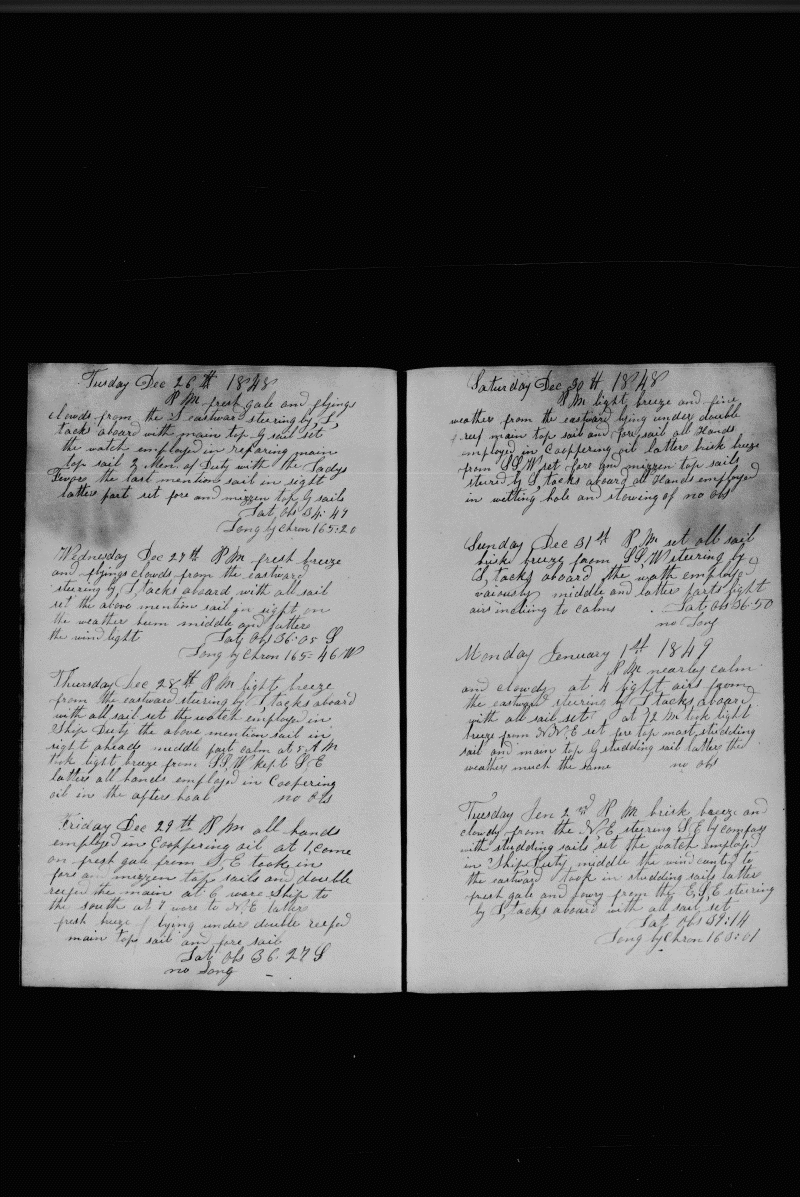 Tusday Dec 26th 1848
P M fresh gale and flyings
clowds from the S eastward steering by S
tacks aboard with main top G sail set
the watch employd in reparing main
top sail 2 Men of Duty with the Ladys
Fevers the last mention sail in sight
latters part set fore and mizzen top G sails
Lat Obs 34:47
Long by Chron 165:20
Wednesday Dec 27th P M fresh breeze
and flyings clowds from the eastward
steering by S, tacks aboard with all sail
set the above mention sail in sight on
the weather beem middle and latters
the wind light Lat Obs 36:05 S
Long by Chron 165:46 W
Thursday Dec 28th P M light breeze
from the eastward sturing by S tacks aboard
with all sail set the watch employd in
Ship Duty the above mention sail in
sight aheads middle part calm at 5 A M
took light breeze from S S W kept S E
latters all hands employed in Coopering
oil in the afters hoal no Obs
Friday Dec 29th P M all hands
employed in Coopering oil at 1, come
on fresh gale from S, E took in
fore and mizzen top sails and double
reefed the main at 6 wore Ship to
the south at 7 wore to N.E latter
fresh breeze lying under double reefed
main top sail and fore sail
Lat Obs 36:27 S
no Long
Saturday Dec 30th 1848
P M light breeze and fine
weather from the eastward lying under double
reef main top sail and fore sail all Hands
employed in Coopering oil latters brisk breeze
from S S W set fore and mizzen top sails
steered by S, tacks aboard all Hands employed
in wetting hole and stowing of no obs
Sunday Dec 31st P M set all sail
brisk breeze from S S, W steering by
S, tacks aboard the wath employed
vaiously middle and latters parts light
airs inclining to calms Lat Obs 36:50
no Long
Monday Jenuary 1st 1849
P M nearley calm
and clowdy at 4 light airs from
the eastward steering by S tacks aboard
with all sail set at 12 M took light
breeze from N N E set fore top mast studding
sail and main top G studding sail latters the
weather much the same no obs
Tuesday Jen 2nd P M brisk breeze and
clowdy from the N, E steering S, E by compas
with studding sails set the watch employed
in Ships Duty middle the wind canted to
the eastward took in studding sails latters
fresh gale and fowry from the E, S, E steering
by S, tacks aboard with all sail set
Lat Obs 39:14
Long by Chron 163:01